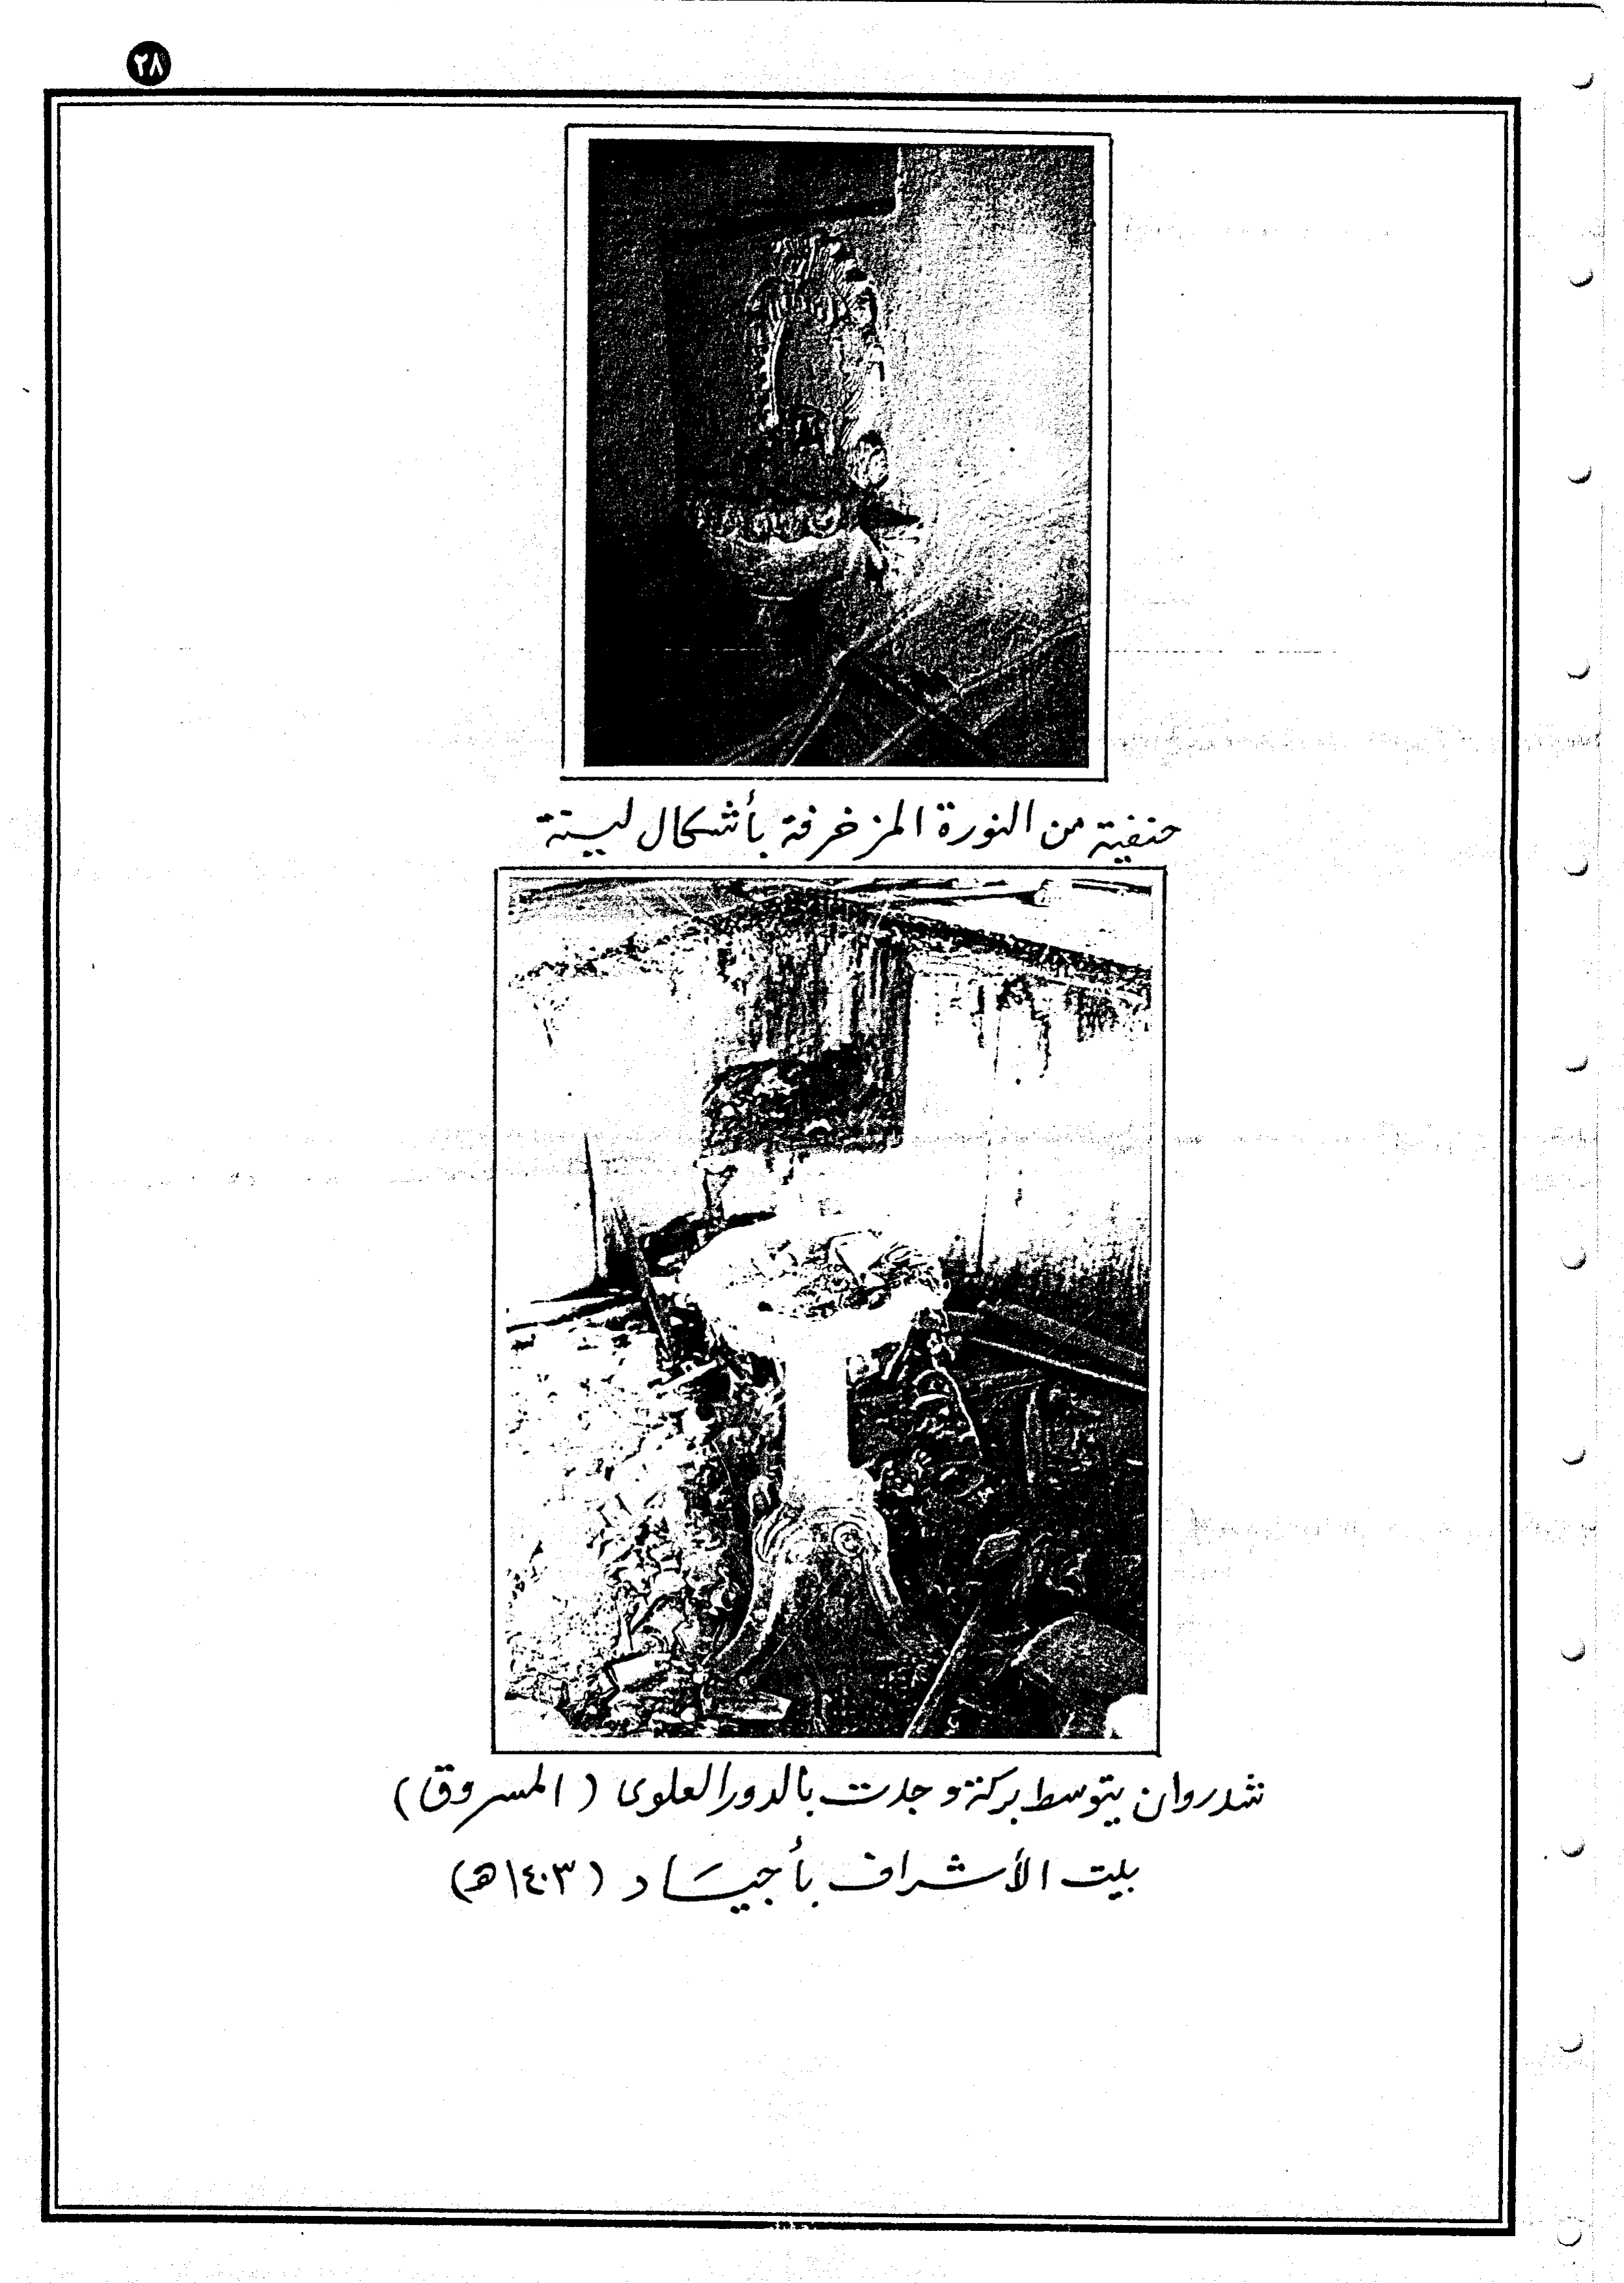 ٢٨
حنفية من النورة المزخرفة بأشكال
شدروان يتوسط بركة وجدت بالدور العلوى (المسروق)
بيت الأشراف بأجياد (١٤٠٣هـ)